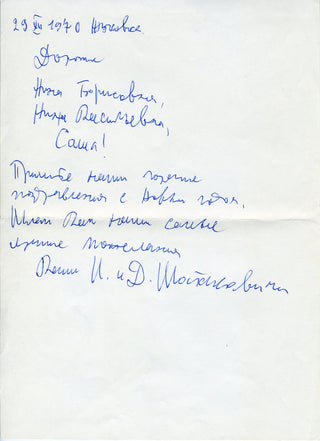 29 XII 1970 Жуковка
Дорогие
Нина Борисовна,
Нина Васильевна,
Саша!
Примите наши горячие
поздравления с Новым годом,
Шлем Вам наши самые
лучшие пожелания
Ваши И. и Д. Шостаковичи